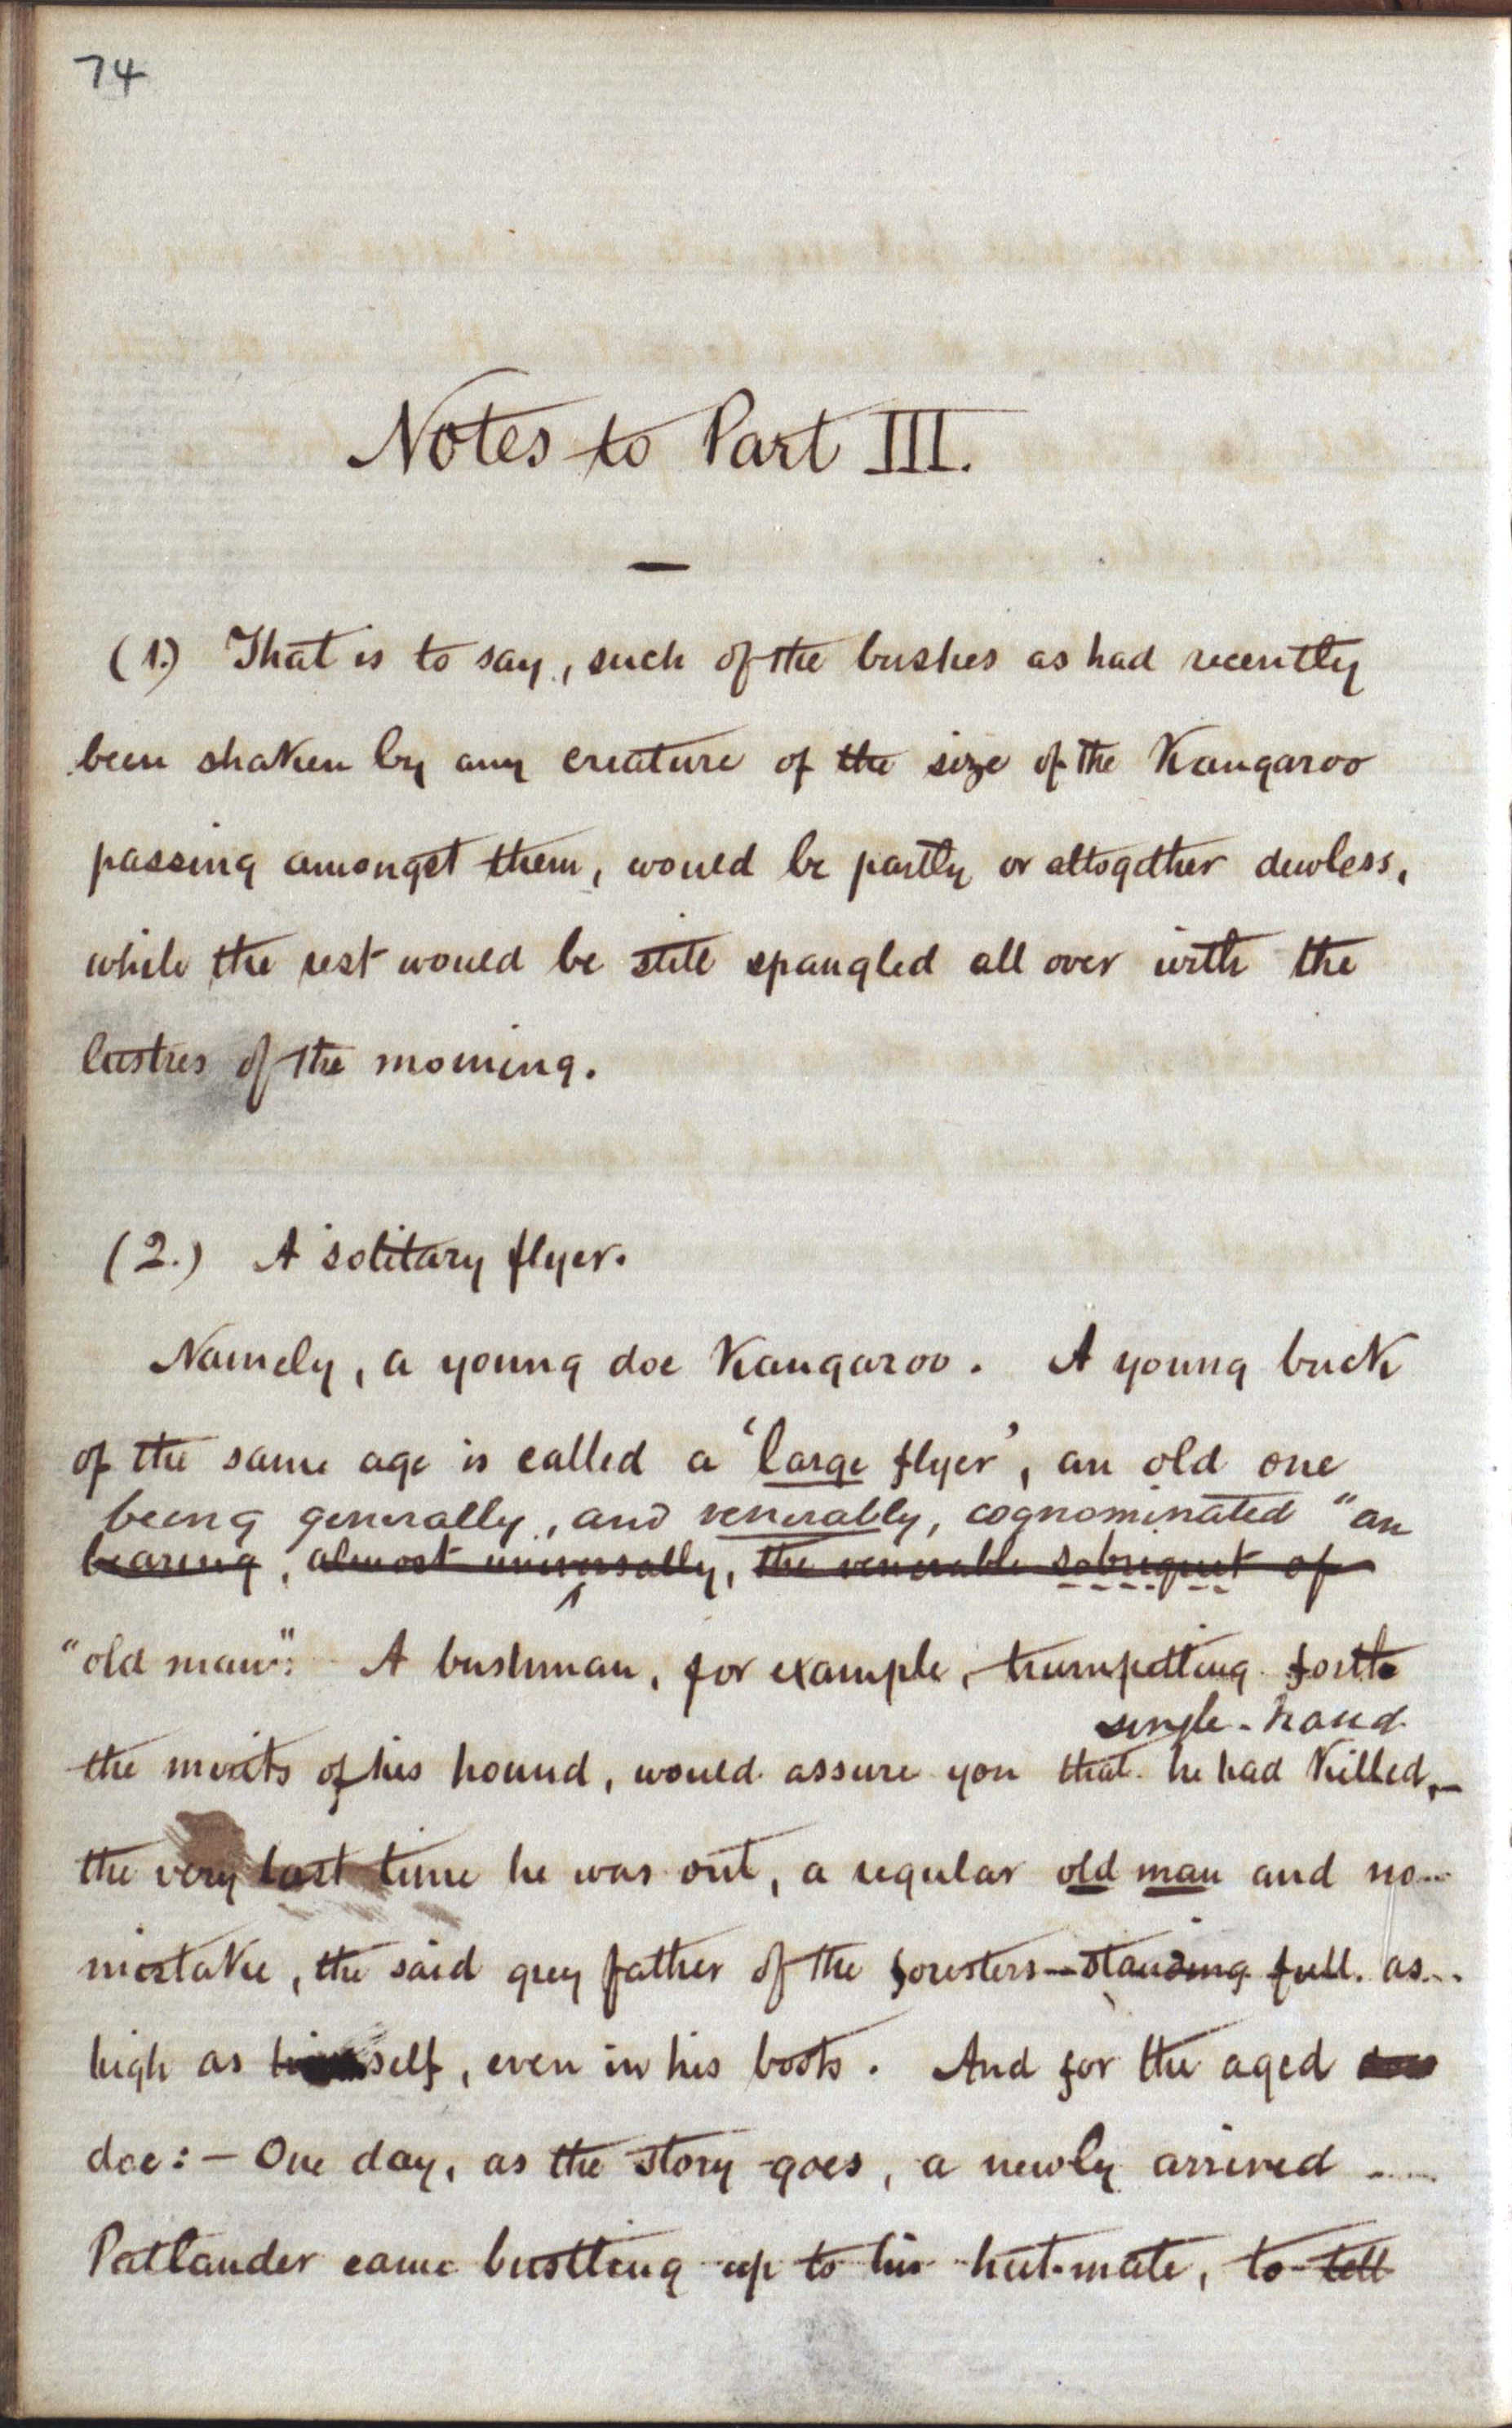 74
Notes to Part III.
(1.) That is to say, such of the bushes as had recently
been shaken by any creature of the size of the Kangaroo
passing amongst them, would be partly or altogether dewless,
while the rest would be still spangled all over with the
lustres of the morning.
(2.) A solitary flyer.
Namely, a young doe Kangaroo. A young buck
of the same age is called a 'large flyer', an old one
being generally, and venerably, cognominated "an
bearing, almost universally, the venerable sobriquet of
"old man": A bushman, for example, trumpetting forth
single-hand
the merits of his hound, would assure you that he had killed,—
the very last time he was out, a regular old man and no
mistake, the said grey father of the foresters—standing full as
high as himself, even in his boots. And for the aged
doe:— One day, as the story goes, a newly arrived
Patlander came bustling up to his hut-mate, to tell